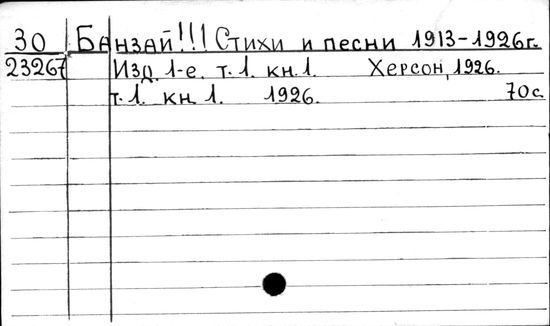 30 Банзай!!! Стихи и песни 1913-1926г.
23267 Изд. 1-е. т. 1. кн. 1. Херсон, 1926.
т. 1. кн. 1. 1926. 70 с.